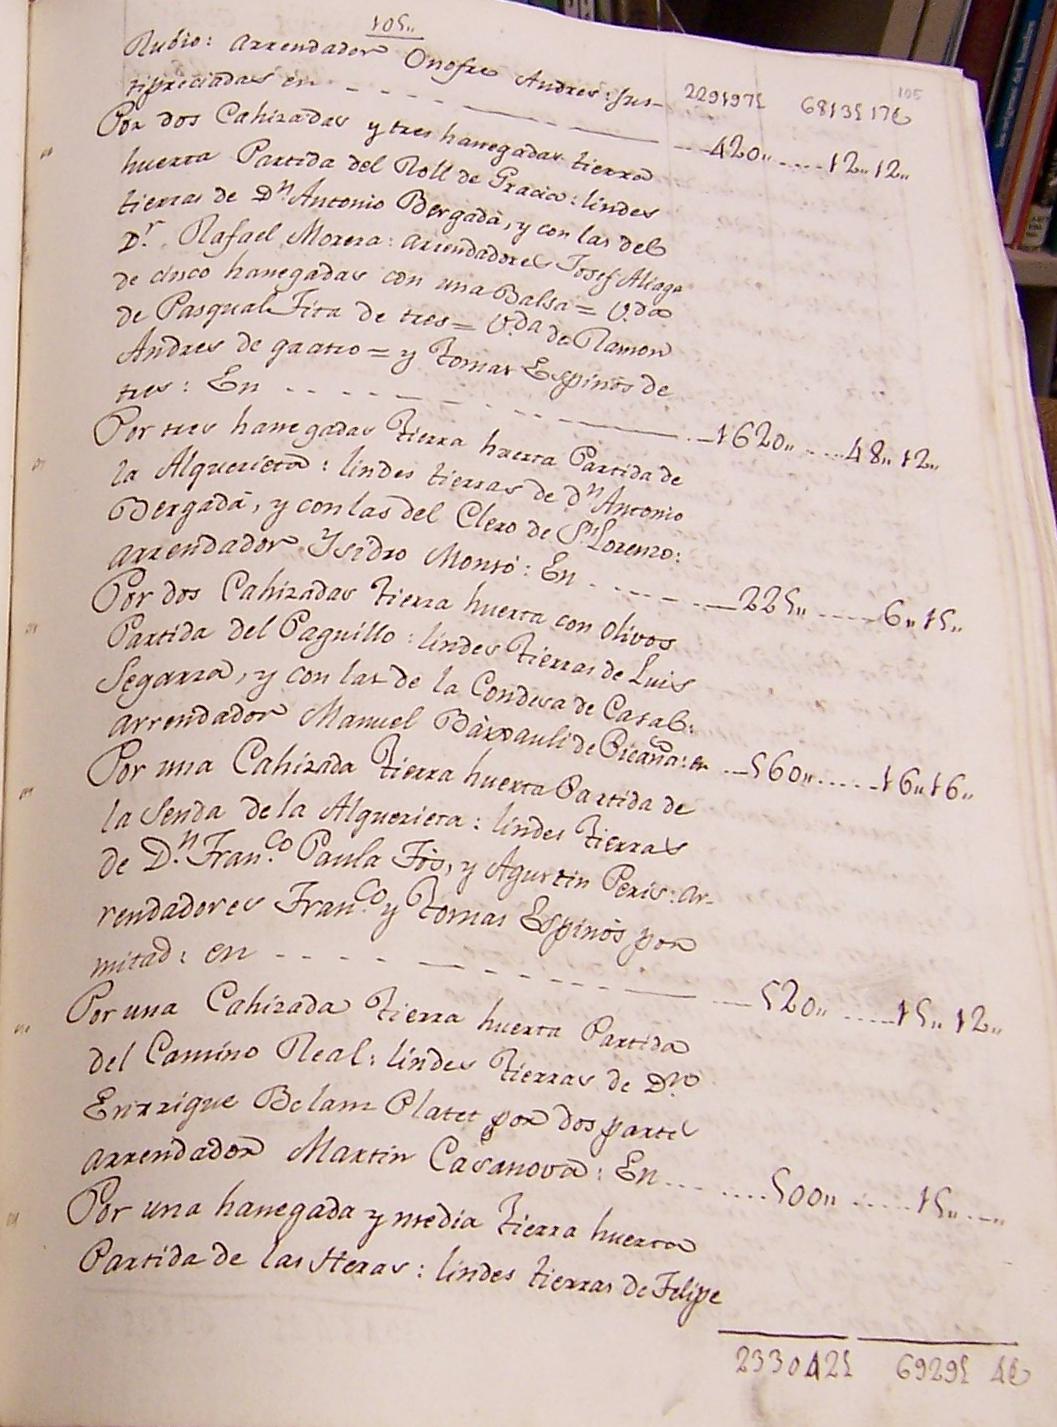 105„
105
229197S 6813S 17C
Rubio: arrendador Onofre Andres: Jus-
tipreciadas en - - - - 420„ ..... 12„12„
Por dos Cahizadas y tres hanegadas tierra
huerta Partida del Roll de Gracia: lindes
tierras de Dn Antonio Bergadà, y con las del
Dr. Rafael Morera: arrendadores Josef Aliaga
de cinco hanegadas con una Balsa = V.da
de Pasqual Fita de tres = V.da de Ramon
Andres de quatro = y Tomas Espinòs de
tres: En - - - - 1620„ ..... 48„12„
Por tres hanegadas tierra huerta Partida de
la Alquerieta: lindes tierras de Dn Antonio
Bergadà, y con las del Clero de Sn Lorenzo:
arrendador Ysidro Monrò: En - - - - 225„ ..... 6„15„
Por dos Cahizadas tierra huerta con olivos
Partida del Paguillo: lindes tierras de Luis
Segarra, y con las de la Condesa de Casal:
arrendador Manuel de Picaña: en ... 560„ ..... 16„16„
Por una Cahizada tierra huerta Partida de
la Senda de la Alquerieta: lindes tierras
de D.n Fran.co Paula Fòs, y Agustin Peris: ar-
rendadores Fran.co y Tomas Espinòs por
mitad: en - - - - 520„ ..... 15„12„
Por una Cahizada tierra huerta Partida
del Camino Real: lindes tierras de D.n
Enrrique Platet por dos partes
arrendador Martin Casanova: En ..... 500„ ..... 15„ ....
Por una hanegada y media tierra huerta
Partida de las Heras: lindes tierras de Felipe
233042S 6929S 4C